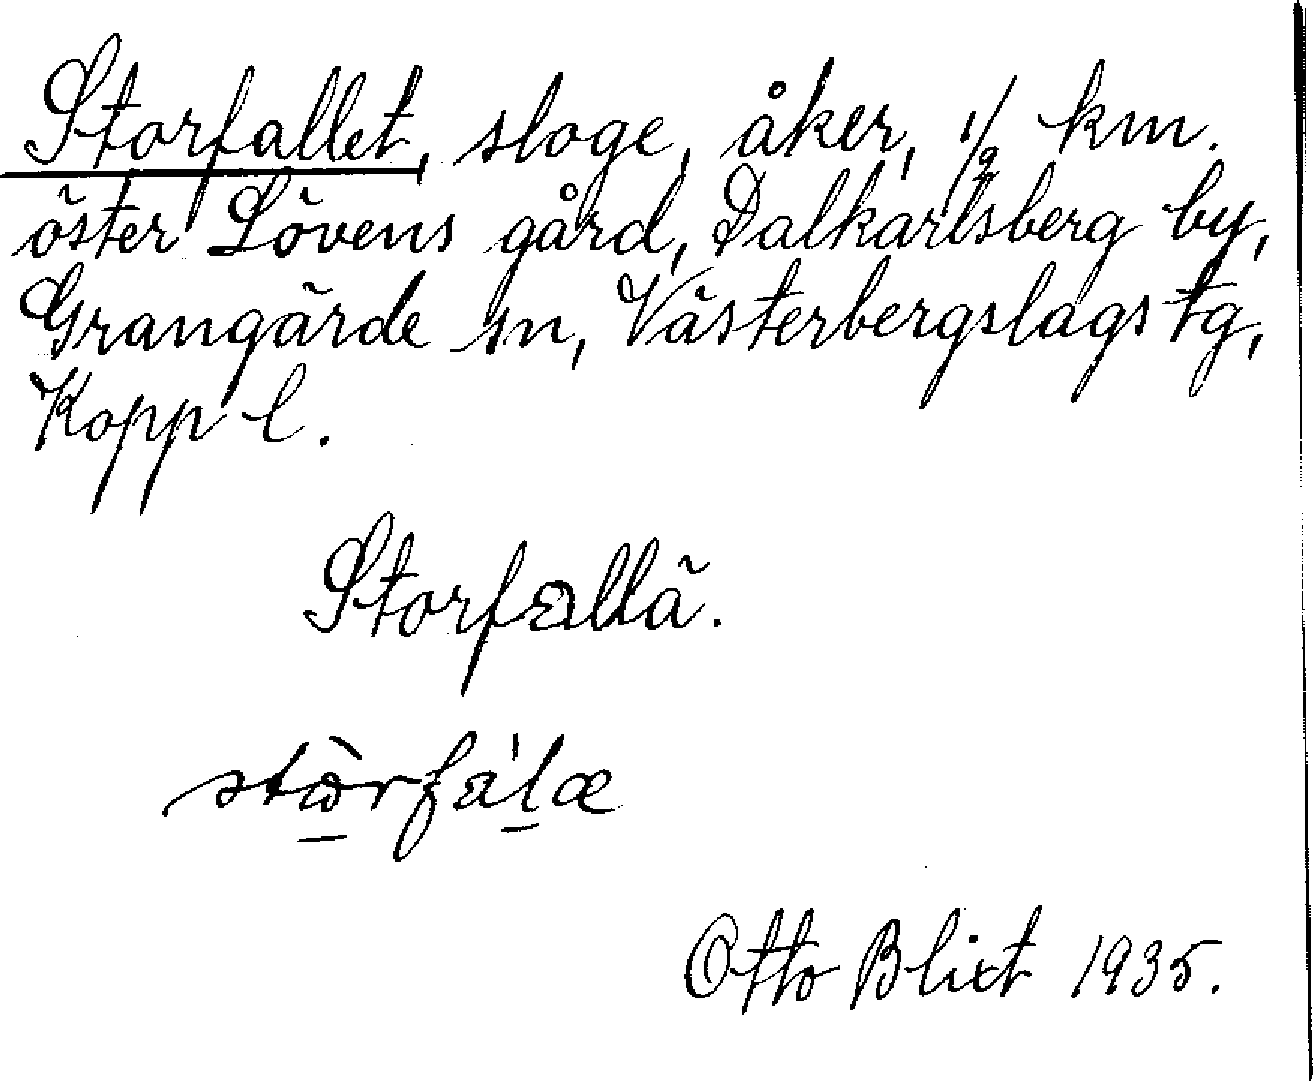 Storfallet, sloge, åker, 1/2 km.
öster Lövens gård, Dalkarlsberg by,
Grangärde sn, Västerbergslags tg,
Kopp l.
Storfallä.
Otto Blixt 1935.